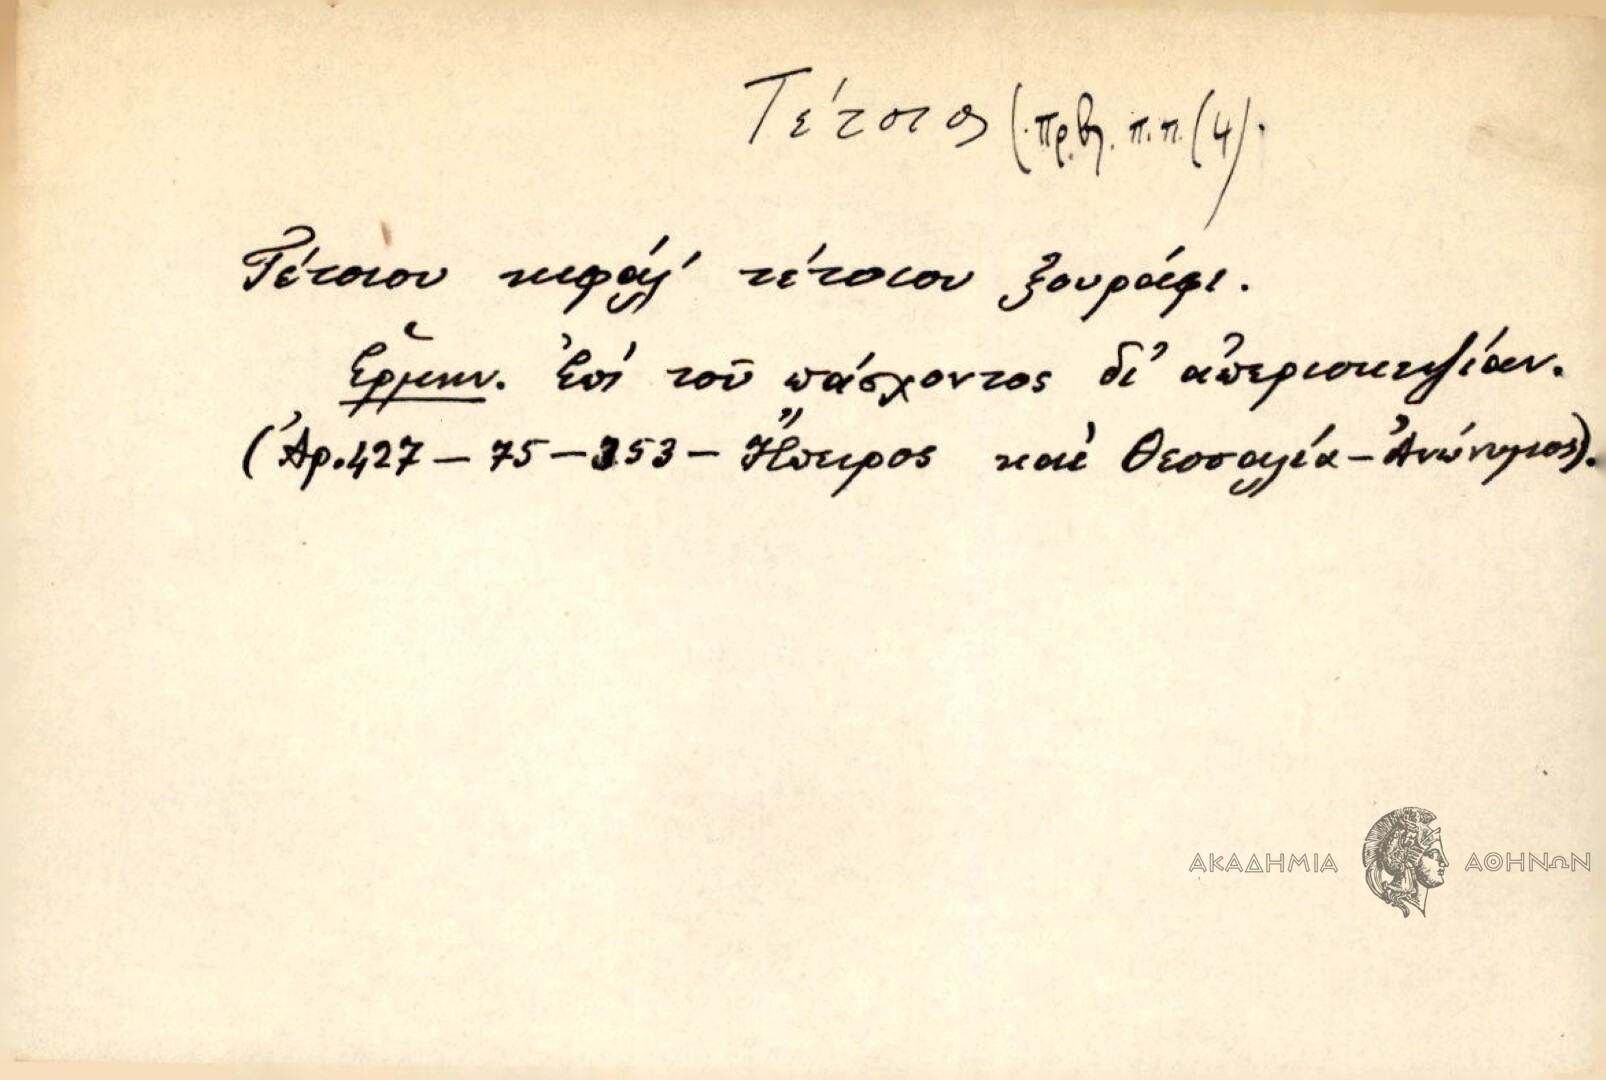 Τέτοιος (πρβλ. π.π. (4).
Τέτοιου κιφάλ' τέτοιου ξουράφι.
Ἑρμην. Ἐπὶ τοῦ πάσχοντος δι' ἀπερισκεψίαν.
(Ἀρ. 427 – 75 – 353 – Ἤπειρος καὶ Θεσσαλία – Ἀνώνυμος).
ΑΚΑΔΗΜΙΑ ΑΘΗΝΩΝ